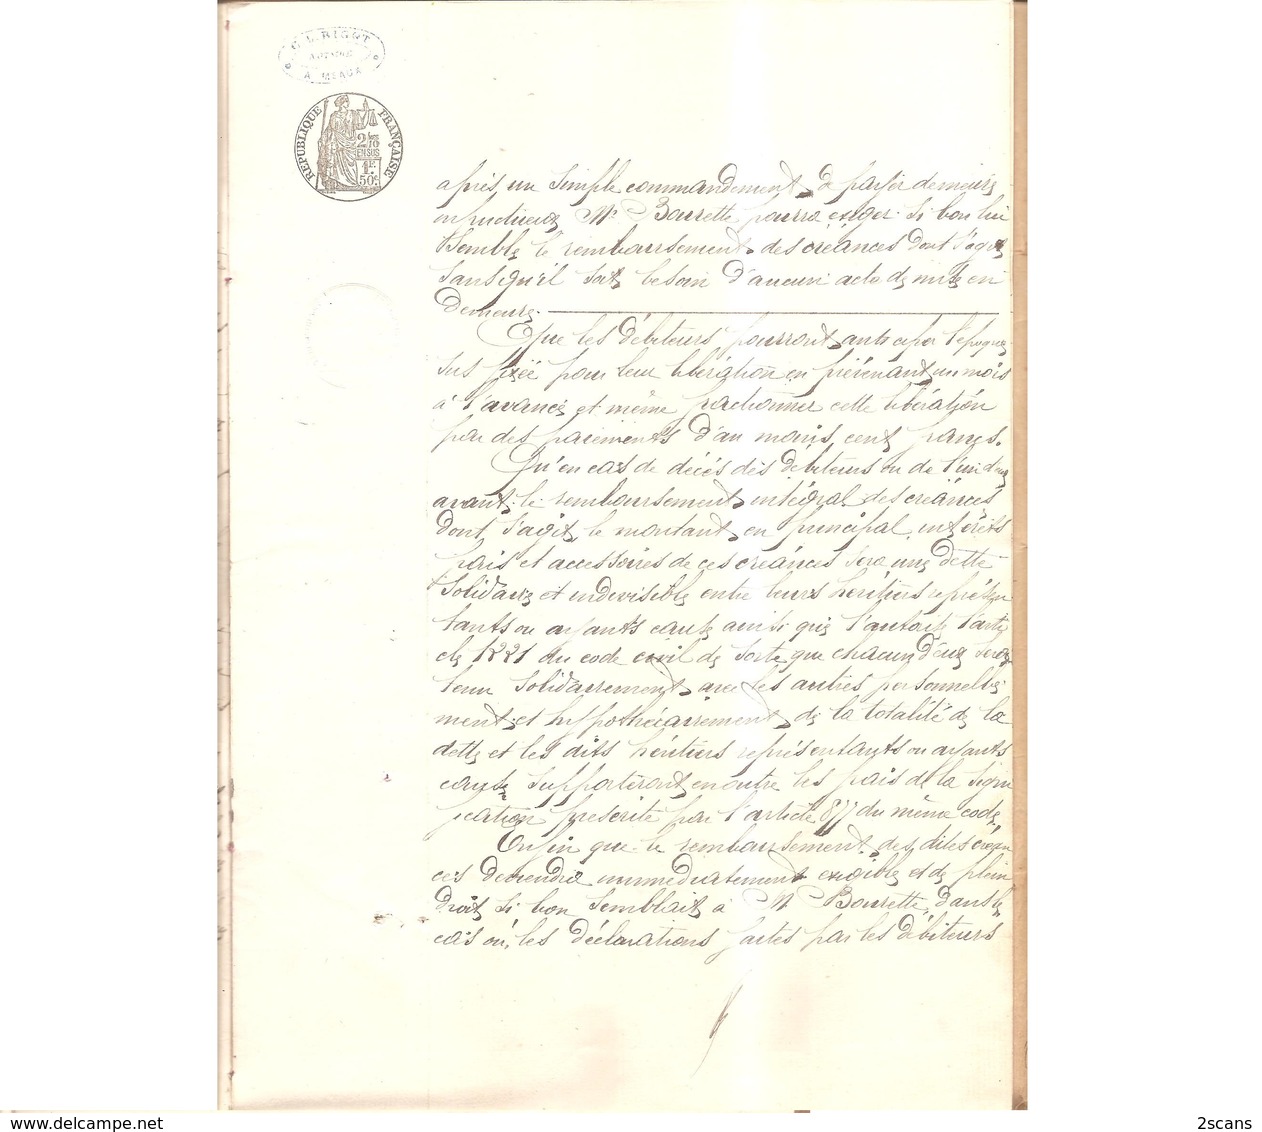 G. L. BIGOT
NOTAIRE
A MEAUX
RÉPUBLIQUE FRANÇAISE
2/10
EN SUS
1F.
50c.
après un simple commandement de payer demeuré
infructueux Mr Bourette pourra exiger si bon lui
semble le remboursement des créances dont s'agit
sans qu'il soit besoin d'aucun acte de mise en
demeure.
Que les débiteurs pourront anticiper l'époque
sus fixée pour leur libération en prévenant un mois
à l'avance et même fractionner cette libération
par des paiements d'au moins cent francs.
Qu'en cas de décès des débiteurs ou de l'un d'eux
avant le remboursement intégral des créances
dont s'agit, le montant en principal, intérêts
frais et accessoires de ces créances sera une dette
solidaire et indivisible entre leurs héritiers représen
tants ou ayants cause ainsi que l'autorise l'arti
cle 1221 du code civil de sorte que chacun d'eux sera
tenu solidairement avec les autres personnelle
ment et hypothécairement de la totalité de la
dette et les dits héritiers représentants ou ayants
cause supporteront en outre les frais de la signi
fication prescrite par l'article 877 du même code.
Enfin que le remboursement des dites créan
ces deviendra immédiatement exigible et de plein
droit si bon semblait à M Bourette dans le
cas où les déclarations faites par les débiteurs
www.delcampe.net
2scans